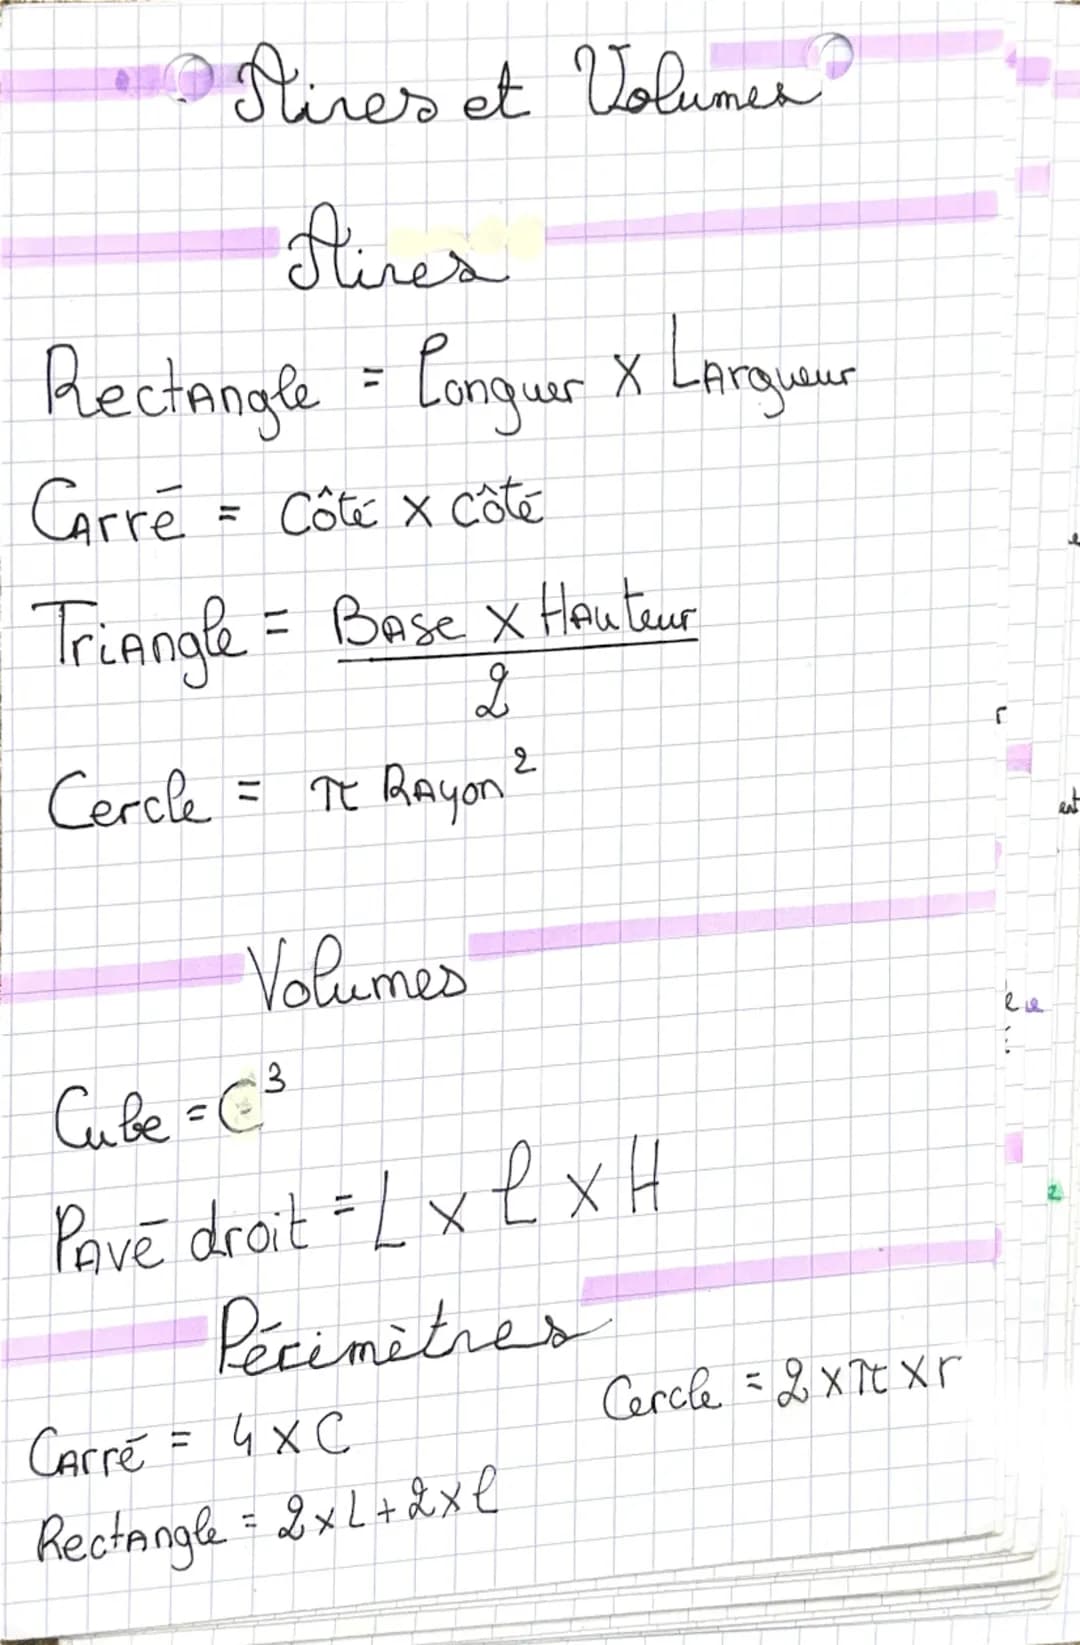 Aires et Volumes
Aires
Rectangle = Longuer x Largueur
Carré = Côté x Côté
Triangle = Base x Hauteur
2
Cercle = π Rayon²
Volumes
Cube = C³
Pavé droit = L x l x H
Périmètres
Cercle = 2 x π x r
Carré = 4 x C
Rectangle = 2 x L + 2 x l